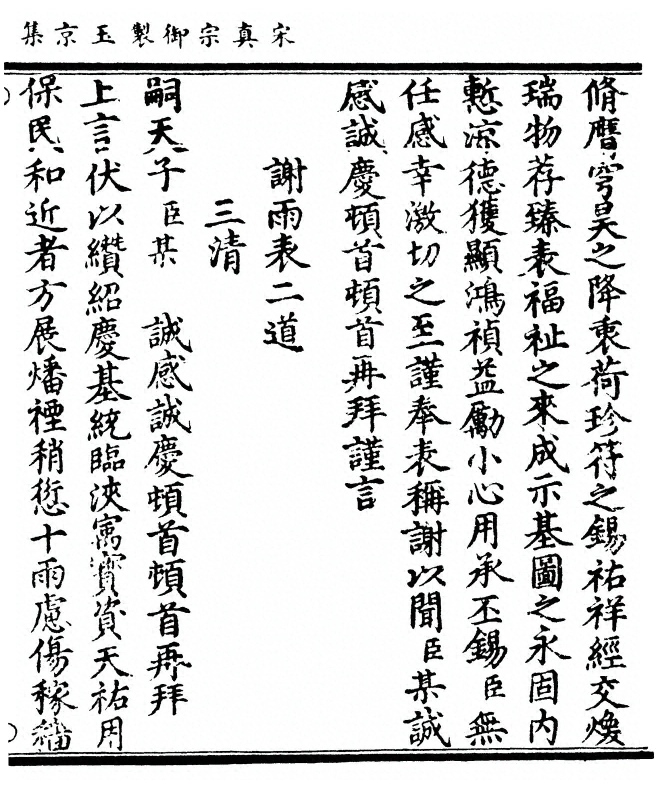 宋真宗御製玉京集
脩曆穹昊之降衷荷珍符之錫祐祥經交煥
瑞物荐臻表福祉之來成示基圖之永固內
慙涼德獲顯鴻禎益勵小心用承丕錫臣無
任感幸激切之至謹奉表稱謝以聞臣某誠
感誠慶頓首頓首再拜謹言
謝雨表二道
三清
嗣天子臣某誠感誠慶頓首頓首再拜
上言伏以纘紹慶基統臨浹寓寔資天祐用
保民和近者方展燔禋稍愆十雨慮傷稼穡